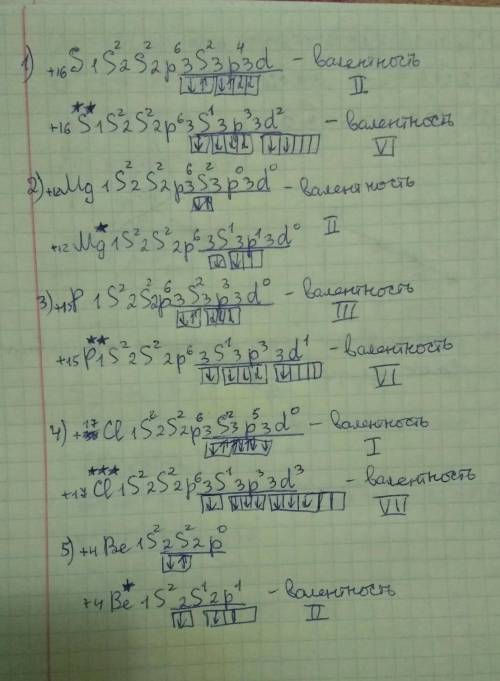 1) +16 S 1S² 2S² 2p⁶ 3S² 3p⁴ 3d - валентность II
+16 S** 1S² 2S² 2p⁶ 3S¹ 3p³ 3d² - валентность VI
2) +12 Mg 1S² 2S² 2p⁶ 3S² 3p⁰ 3d⁰ - валентность II
+12 Mg* 1S² 2S² 2p⁶ 3S¹ 3p¹ 3d⁰
3) +15 P 1S² 2S² 2p⁶ 3S² 3p³ 3d⁰ - валентность III
+15 P** 1S² 2S² 2p⁶ 3S¹ 3p³ 3d¹ - валентность VI
4) +17 Cl 1S² 2S² 2p⁶ 3S² 3p⁵ 3d⁰ - валентность I
+17 Cl*** 1S² 2S² 2p⁶ 3S¹ 3p³ 3d³ - валентность VII
5) +4 Be 1S² 2S² 2p⁰
+4 Be* 1S² 2S¹ 2p¹ - валентность II